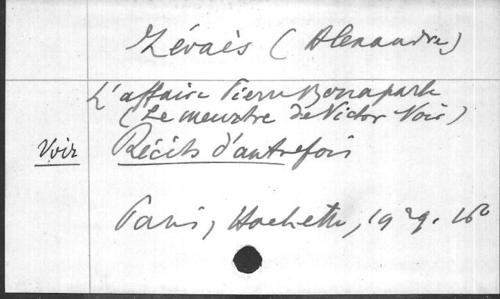 Zévaès (Alexandre)
L'affaire Pierre Bonaparte
(Le meurtre de Victor Noir)
Voir Récits d'autrefois
Paris, Hachette, 1929. 16°